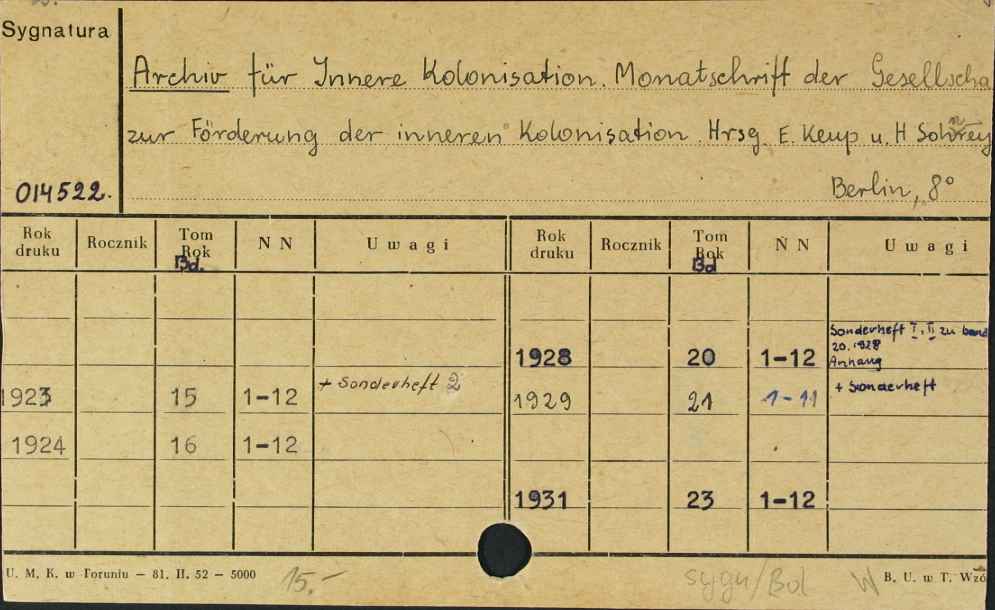 Sygnatura
Archiv für Innere Kolonisation. Monatschrift der Gesellscha
zur Förderung der inneren Kolonisation. Hrsg. E. Keup u. H Sohnrey
014522.
Berlin, 8°
Rok druku Rocznik Tom Rok Bd. N N Uwagi Rok druku Rocznik Tom Rok Bd N N Uwagi
Sonderheft I, II zu band
20. 1928
1928 20 1-12 Anhang
1923 15 1-12 + Sonderheft 2 1929 21 1-11 + Sonderheft
1924 16 1-12
1931 23 1-12
U. M. K. w Toruniu — 81. II. 52 — 5000 15.- sygn/Bd W B. U. w T. Wzó